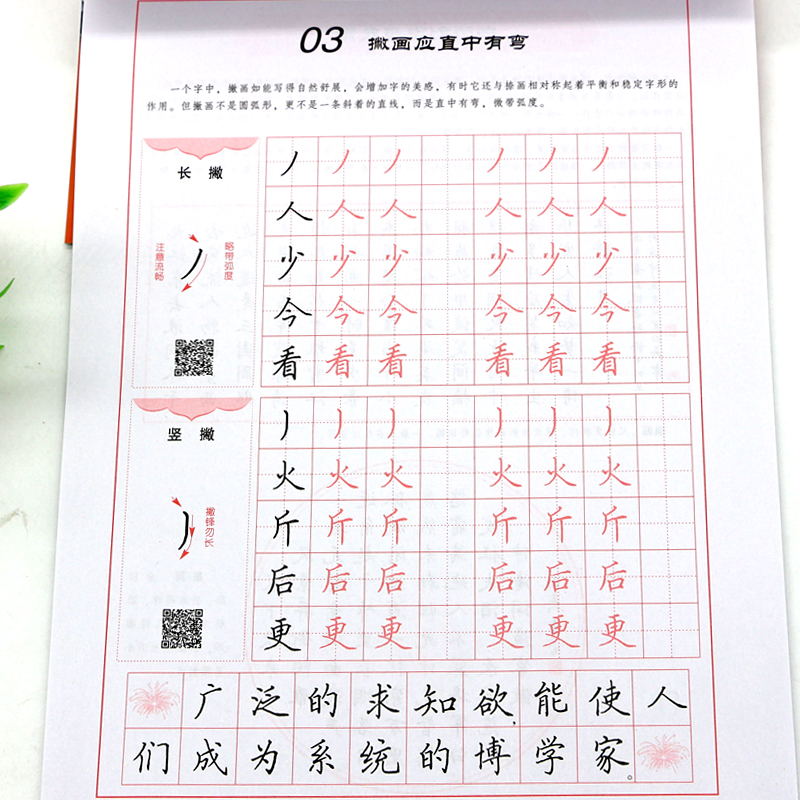 03 撇画应直中有弯
一个字中，撇画如能写得自然舒展，会增加字的美感，有时它还与捺画相对称起着平衡和稳定字形的
作用。但撇画不是圆弧形，更不是一条斜着的直线，而是直中有弯，微带弧度。
长 撇
注意流畅
略带弧度
丿 丿 丿 丿 丿 丿
人 人 人 人 人 人
少 少 少 少 少 少
今 今 今 今 今 今
看 看 看 看 看 看
竖 撇
撇锋勿长
丿 丿 丿 丿 丿 丿
火 火 火 火 火 火
斤 斤 斤 斤 斤 斤
后 后 后 后 后 后
更 更 更 更 更 更
广泛的求知欲，能使人
们成为系统的博学家。